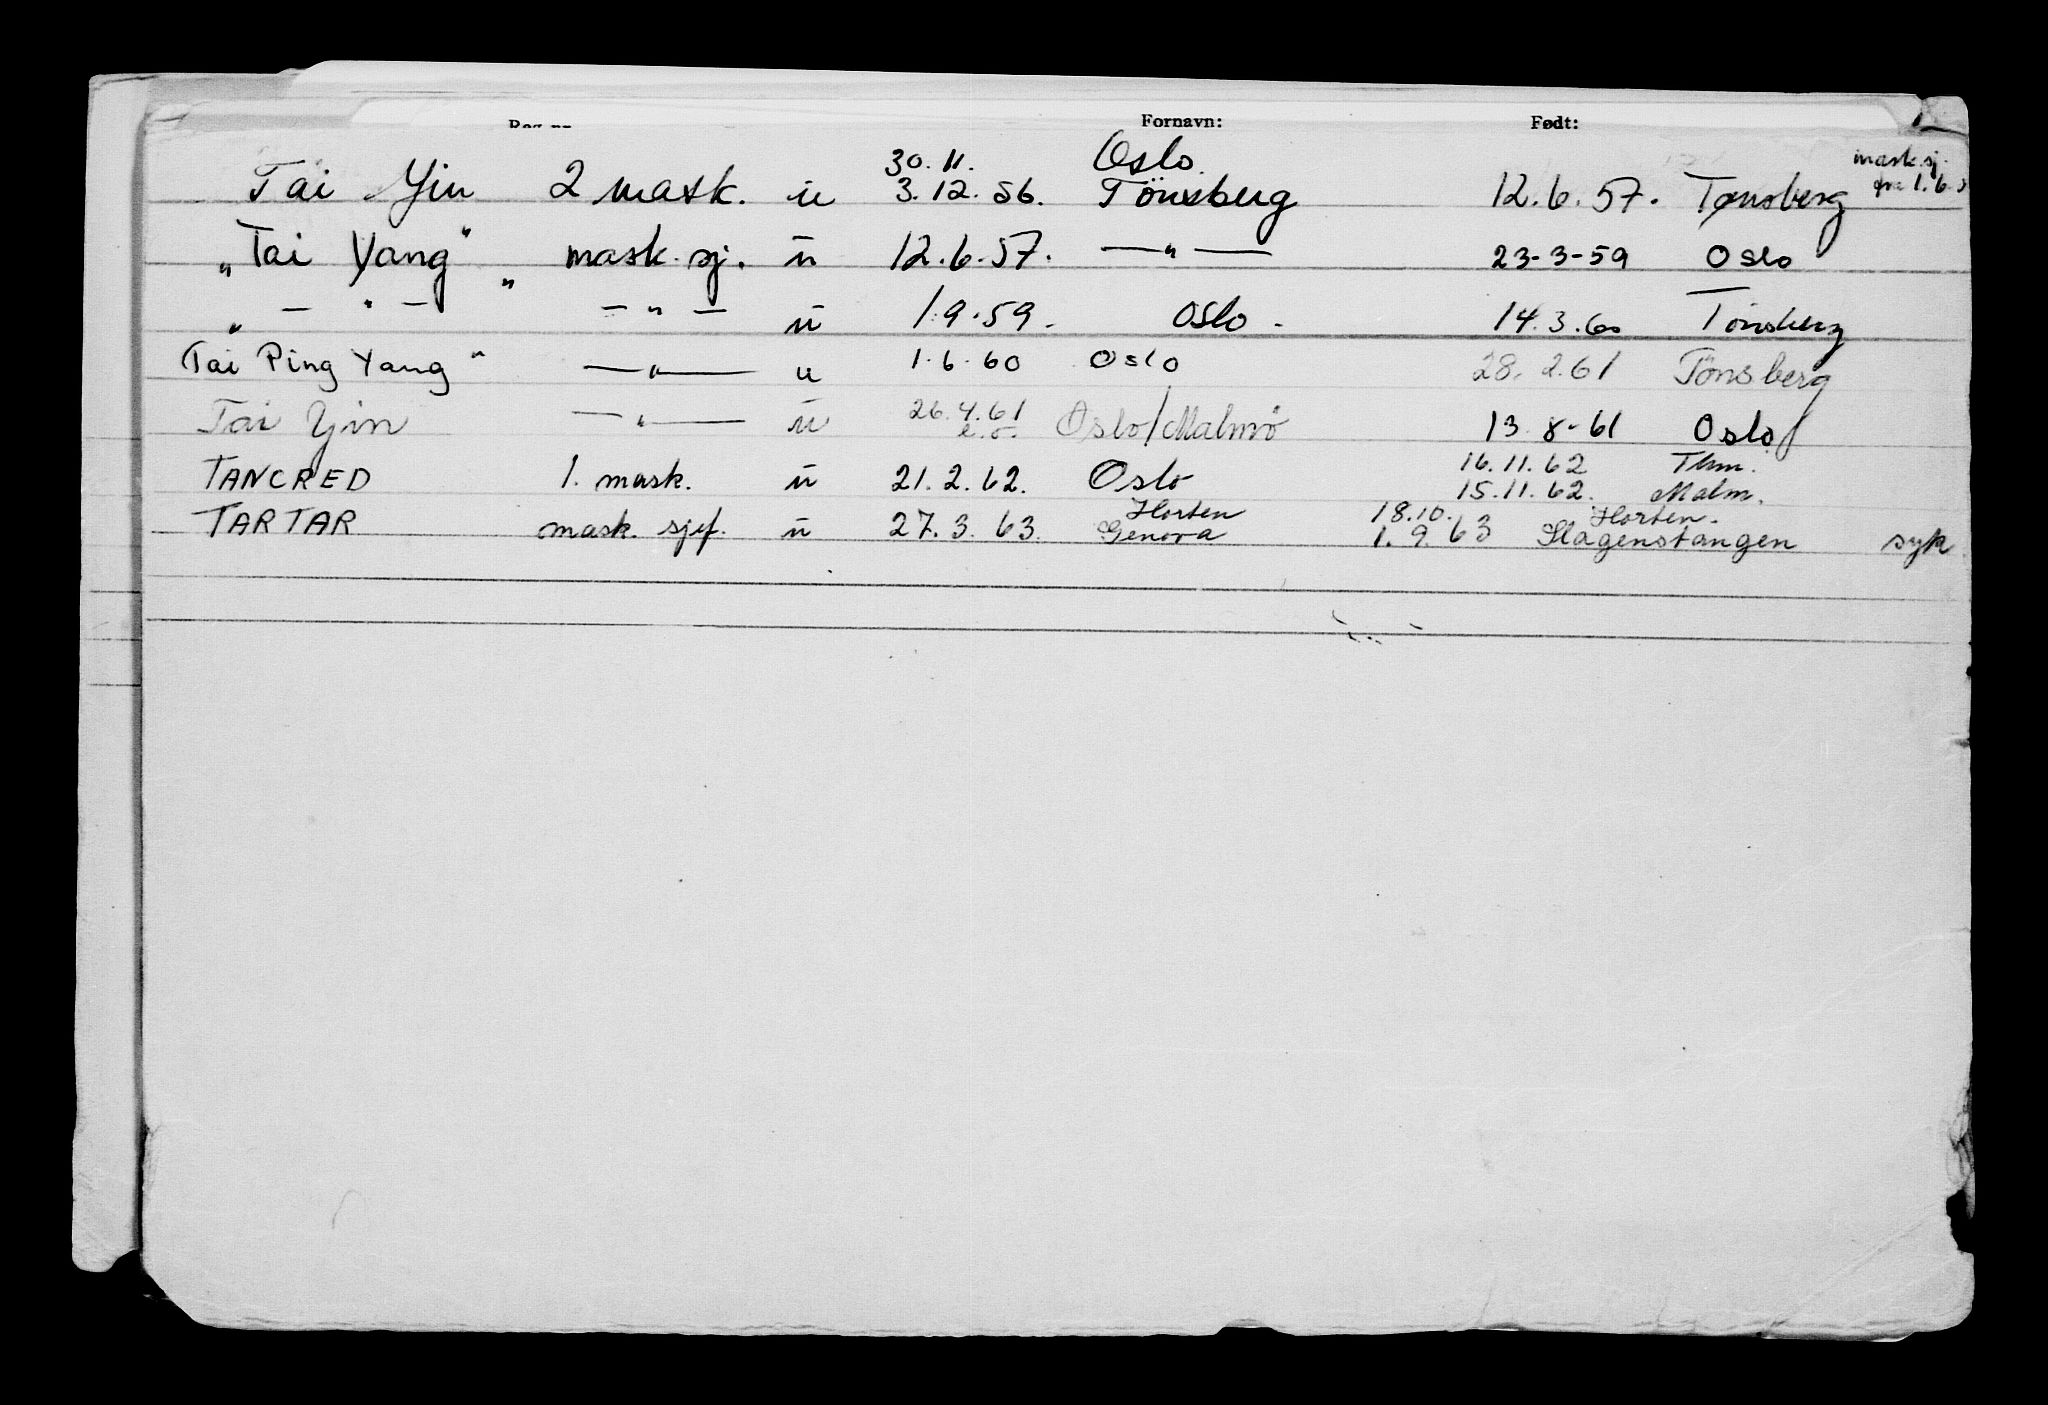 Fornavn: Født:
30.11. Oslo. mask.sj.
Tai Yin 2 mask. u 3.12.56. Tönsberg 12.6.57. Tønsberg fra 1.6.
"Tai Yang" mask.sj. u 12.6.57. — " — 23-3-59 Oslo
" — " — " — " — u 1.9.59. Oslo. 14.3.60 Tönsberg
Tai Ping Yang" — " — u 1.6.60 Oslo 28.2.61 Tönsberg
Tai Yin — " — u 26.4.61 Oslo/Malmö 13.8-61 Oslo
e.o.
16.11.62
TANCRED 1. mask. u 21.2.62. Oslo 15.11.62. Malm.
Horten 18.10. Horten.
TARTAR mask. sjef. u 27.3.63. Genova 1.9.63 Slagenstangen syk